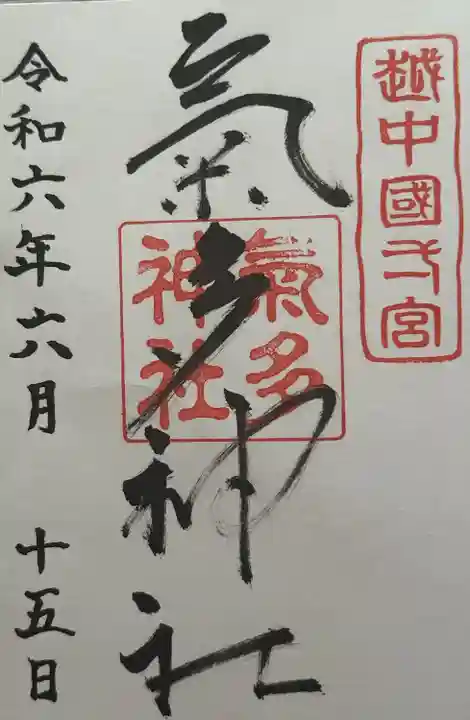 越中國弌宮
氣多神社
氣多
神社
令和六年六月 十五日